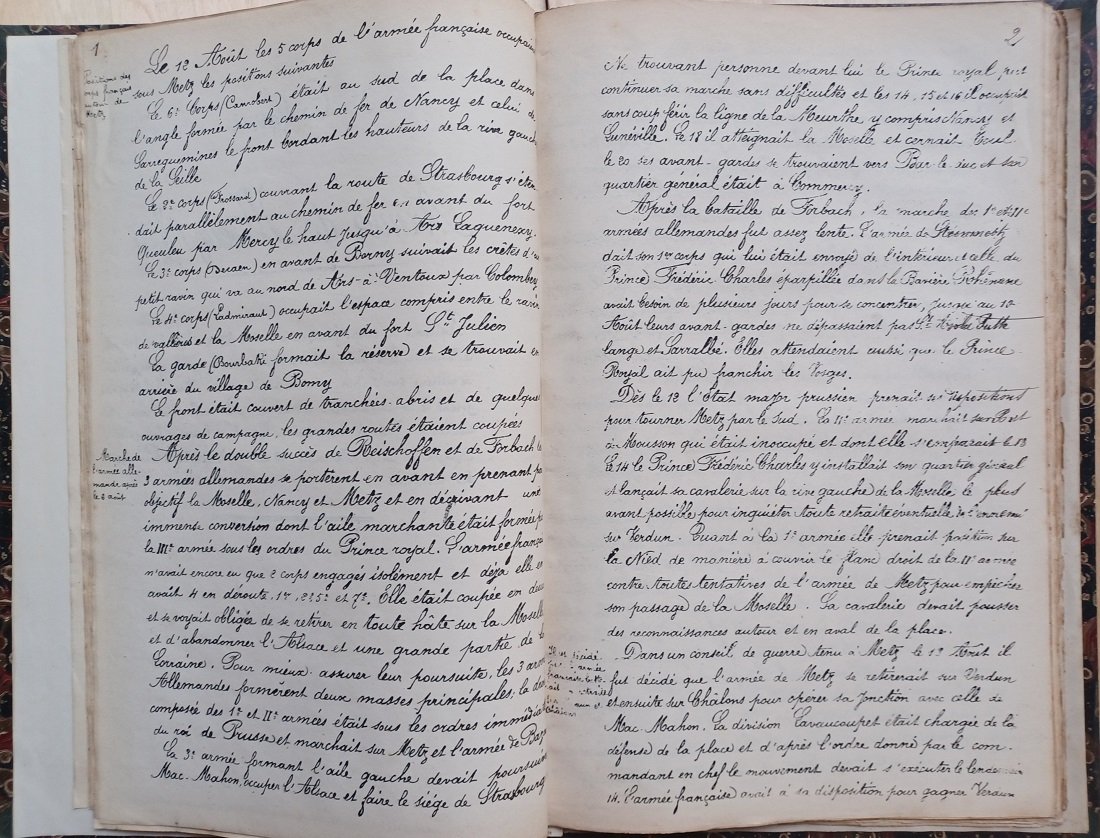 1
Positions des
corps français
autour de
Metz
Le 12 Août les 5 corps de l'armée française occupaient
sous Metz les positions suivantes
Le 6e Corps (Canrobert) était au sud de la place dans
l'angle formée par le chemin de fer de Nancy et celui de
Sarreguemines le front bordant les hauteurs de la rive gauche
de la Seille
Le 2e corps (Frossard) couvrant la route de Strasbourg s'éten
dait parallèlement au chemin de fer en avant du fort
Queuleu par Mercy le haut jusqu'à Ars Laquenexy.
Le 3e corps (Decaen) en avant de Borny suivait les crêtes d'un
petit ravin qui va au nord de Ars-à-Ventoux par Colombey
Le 4e corps (Ladmirault) occupait l'espace compris entre le ravin
de vallières et la Moselle en avant du fort St Julien
La garde (Bourbaki formait la réserve) et se trouvait en
arrière du village de Borny
Le front était couvert de tranchées-abris et de quelques
ouvrages de campagne, les grandes routes étaient coupées
Marche de
l'armée alle-
mande après
le 6 août
Après le double succès de Reischoffen et de Forbach les
3 armées allemandes se portèrent en avant en prenant pour
objectif la Moselle, Nancy et Metz et en décrivant une
immense conversion dont l'aile marchante était formée par
la IIIe armée sous les ordres du Prince royal. L'armée française
n'avait encore eu que 2 corps engagés isolément et déjà elle en
avait 4 en déroute, 1er, 2e 5e et 7e. Elle était coupée en deux
et se voyait obligée de se retirer en toute hâte sur la Moselle
et d'abandonner l'Alsace et une grande partie de la
Lorraine. Pour mieux assurer leur poursuite, les 3 armées
Allemandes formèrent deux masses principales; la
composée des 1e et IIe armées était sous les ordres immédiats
du roi de Prusse et marchait sur Metz et l'armée de
La 3e armée formant l'aile gauche devait poursuivre
Mac-Mahon, occuper l'Alsace et faire le siège de Strasbourg
2
Ne trouvant personne devant lui le Prince royal put
continuer sa marche sans difficultés et les 14, 15 et 16 il occupait
sans coup férir la ligne de la Meurthe, y compris Nancy et
Lunéville. Le 18 il atteignait la Moselle et cernait Toul
le 20 ses avant-gardes se trouvaient vers Bar le duc et son
quartier général était à Commercy.
Après la bataille de Forbach, la marche des 1e et IIe
armées allemandes fut assez lente. L'armée de Steinmetz
dait son 1er corps qui lui était envoyé de l'intérieur et celle du
Prince Frédéric Charles éparpillée dans la Bavière Rhénane
avait besoin de plusieurs jours pour se concentrer, jusqu'au 12
Août leurs avant-gardes ne dépassaient pas Putte
lange et Sarralbe. Elles attendaient aussi que le Prince
Royal ait pu franchir les Vosges.
Dès le 12 l'État major prussien prenait ses dispositions
pour tourner Metz par le sud. La IIe armée marchait sur Pont
à Mousson qui était inoccupé et dont elle s'emparait le 13
Le 14 le Prince Frédéric Charles y installait son quartier général
et lançait sa cavalerie sur la rive gauche de la Moselle le plus
avant possible pour inquiéter toute retraite éventuelle de l'ennemi
sur Verdun. Quant à la 1e armée elle prenait position sur
la Nied de manière à couvrir le flanc droit de la IIe armée
contre toutes tentatives de l'armée de Metz pour empêcher
son passage de la Moselle. Sa cavalerie devait pousser
des reconnaissances autour et en aval de la place.
Dans un conseil de guerre tenu à Metz le 12 Août il
fut décidé que l'armée de Metz se retirerait sur Verdun
et ensuite sur Châlons pour opérer sa jonction avec celle de
Mac Mahon. La division Lavaucoupet était chargée de la
défense de la place et d'après l'ordre donné par le com-
mandant en chef le mouvement devait s'exécuter le lendemain
14. L'armée française avait à sa disposition pour gagner Verdun